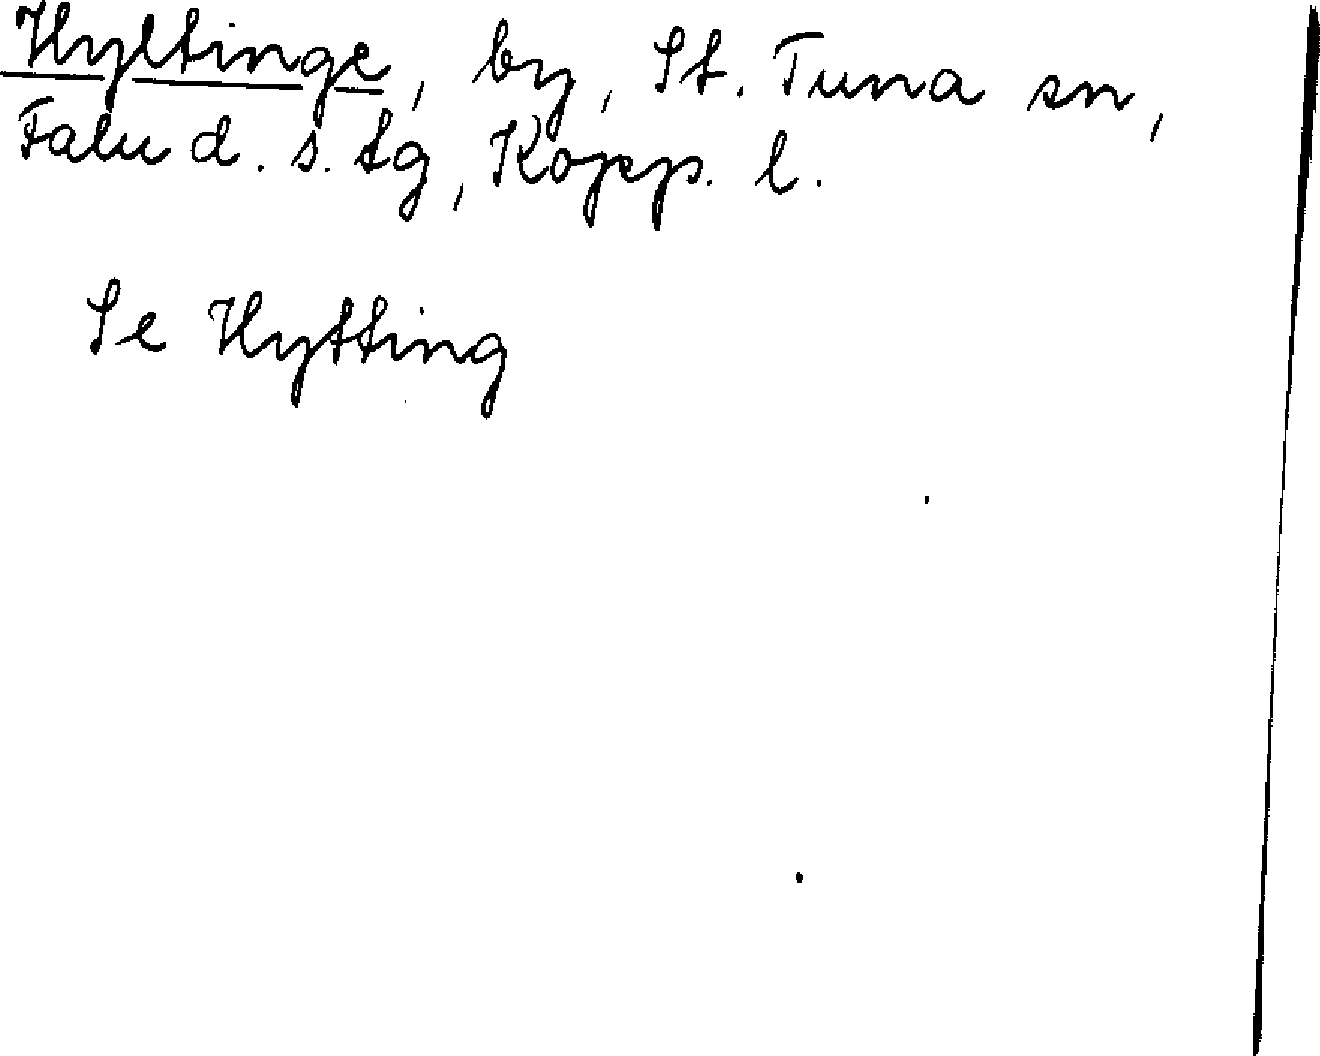 Hyltinge, by, St. Tuna sn,
Falu d. s. tg, Kopp. l.
Se Hytting